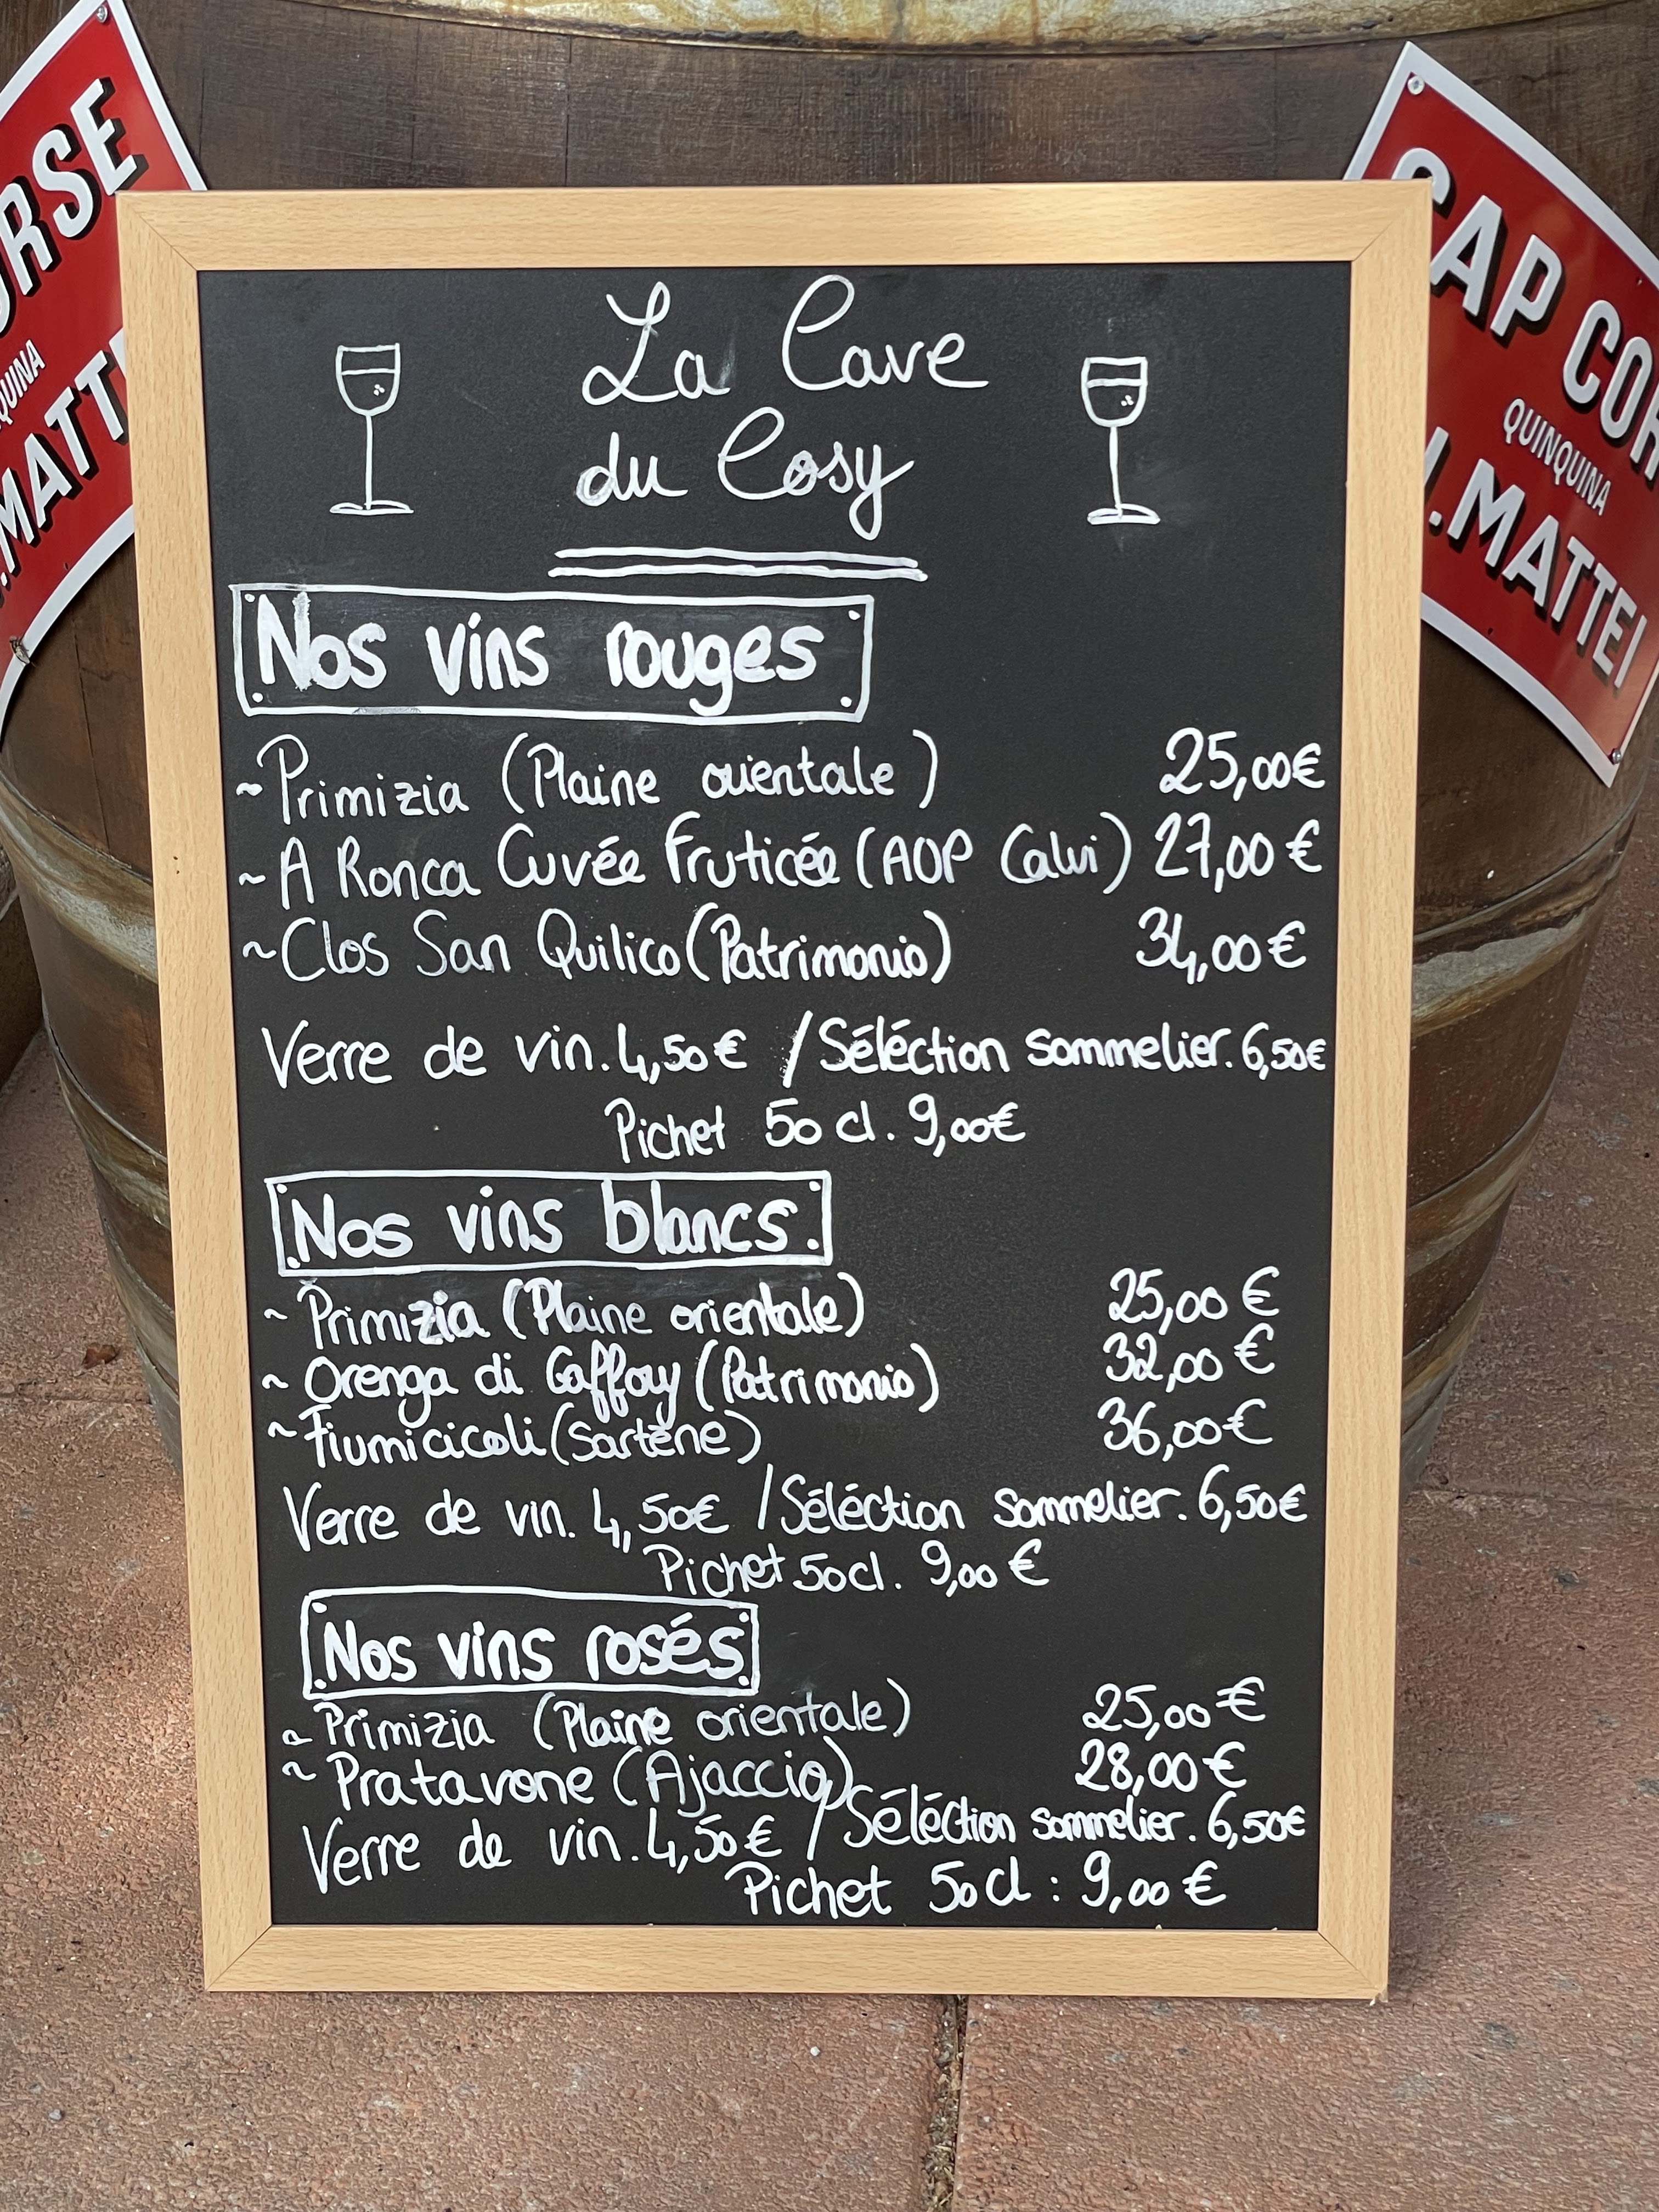 La Cave
du Cosy
Nos vins rouges
~Primizia (Plaine orientale) 25,00€
~A Ronca Cuvée Fruticée (AOP Calvi) 27,00€
~Clos San Quilico (Patrimonio) 34,00€
Verre de vin. 4,50€ / Séléction sommelier. 6,50€
Pichet 50 cl. 9,00€
Nos vins blancs
~ Primizia (Plaine orientale) 25,00€
~ Orenga di Gaffory (Patrimonio) 32,00€
~ Fiumicicoli (Sartène) 36,00€
Verre de vin. 4,50€ / Séléction sommelier. 6,50€
Pichet 50cl. 9,00€
Nos vins rosés
~ Primizia (Plaine orientale) 25,00€
~ Pratavone (Ajaccio) 28,00€
Verre de vin. 4,50€ / Séléction sommelier. 6,50€
Pichet 50cl : 9,00€
CAP COR
QUINQUINA
.MATTEI
ORSE
QUINA
.MATT